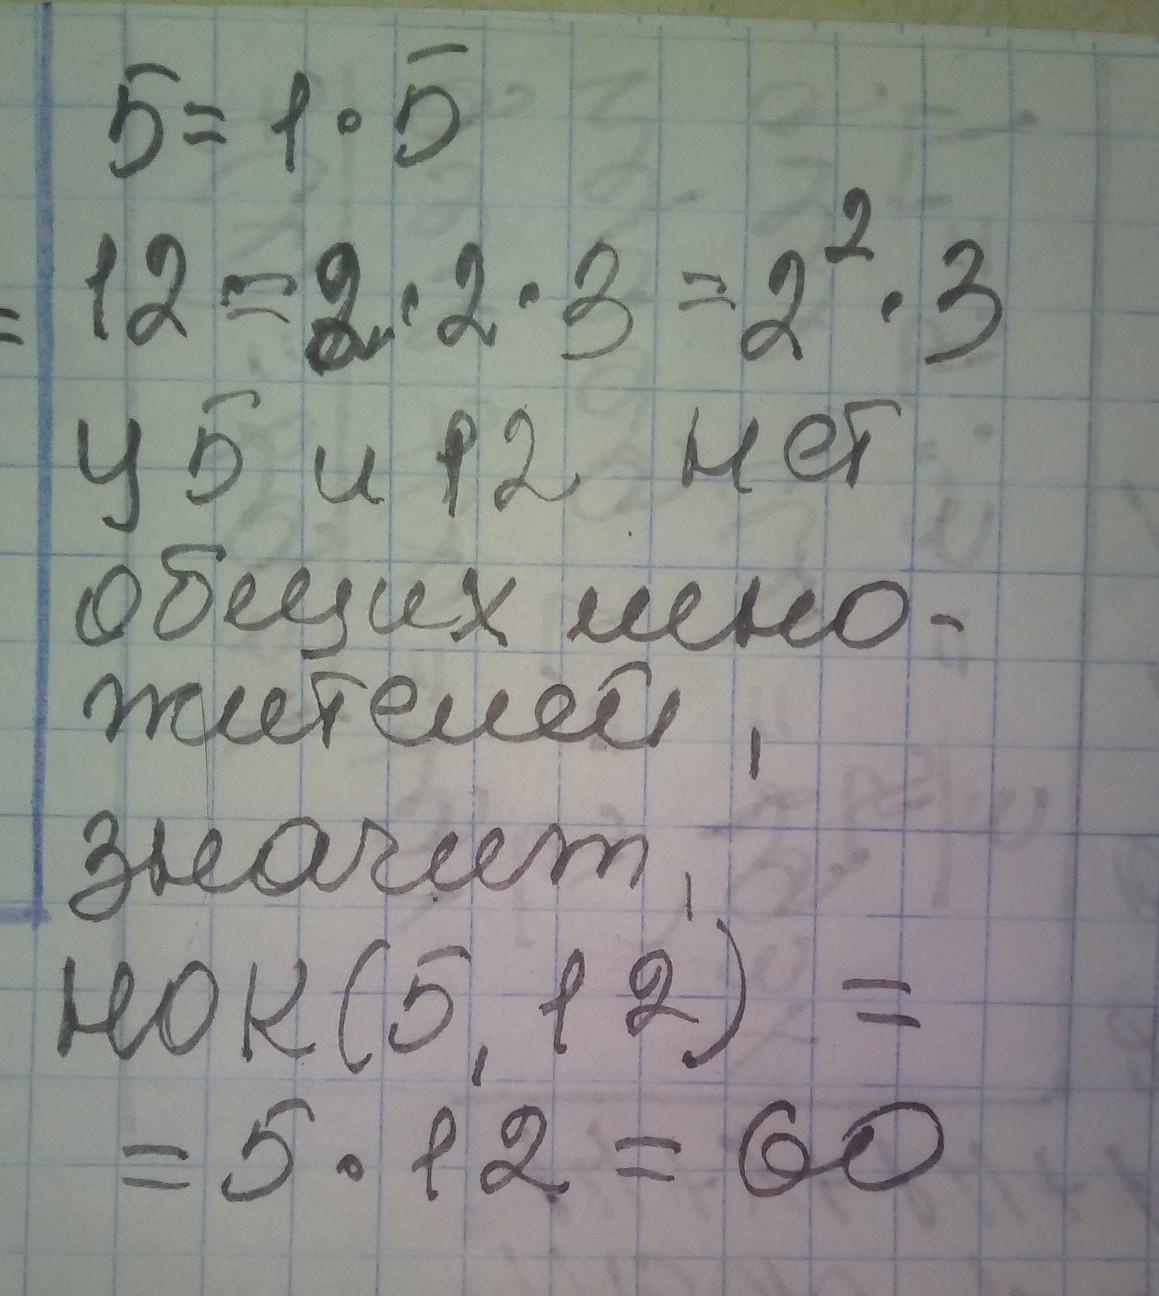 5 = 1 · 5
= 12 = 2 · 2 · 3 = 2² · 3
у 5 и 12 нет
общих мно-
жителей,
значит,
НОК(5, 12) =
= 5 · 12 = 60